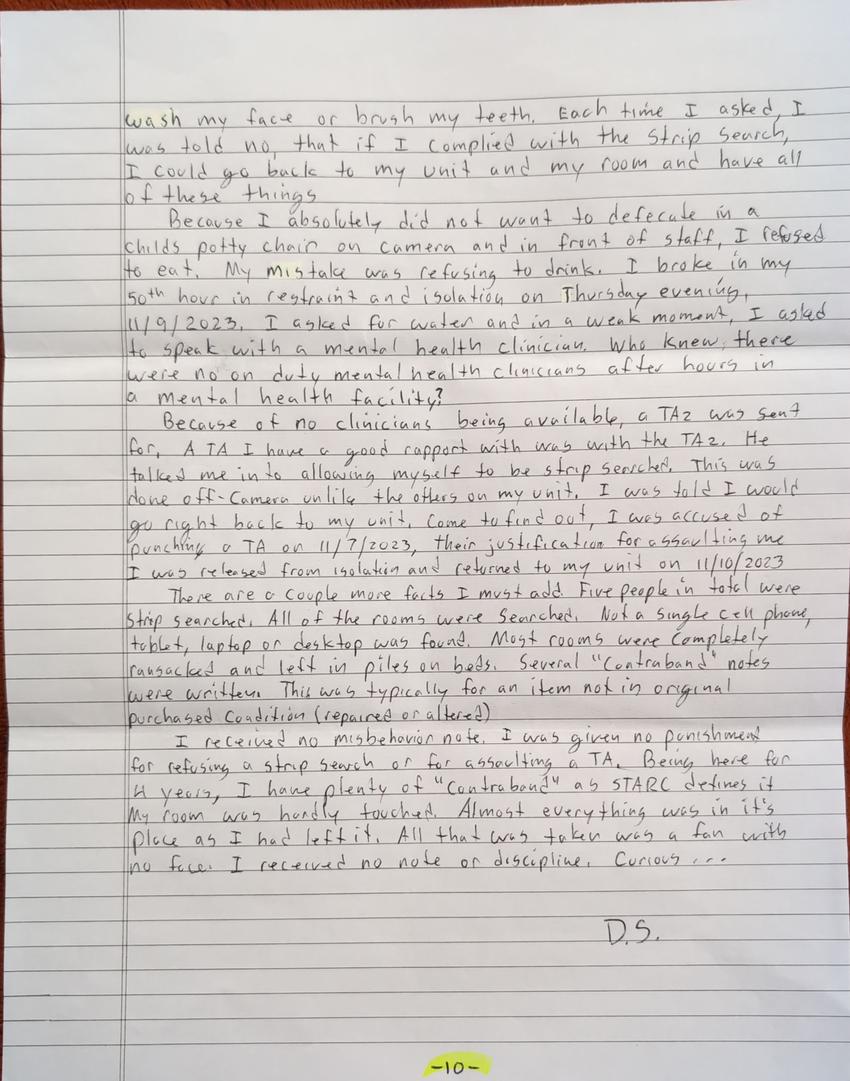 wash my face or brush my teeth. Each time I asked, I
was told no, that if I complied with the strip search,
I could go back to my unit and my room and have all
of these things
Because I absolutely did not want to defecate in a
childs potty chair on camera and in front of staff, I refused
to eat. My mistake was refusing to drink. I broke in my
50th hour in restraint and isolation on Thursday evening,
11/9/2023. I asked for water and in a weak moment, I asked
to speak with a mental health clinician. Who knew there
were no on duty mental health clinicians after hours in
a mental health facility?
Because of no clinicians being available, a TA2 was sent
for. A TA I have a good rapport with was with the TA2. He
talked me into allowing myself to be strip searched. This was
done off-camera unlike the others on my unit. I was told I would
go right back to my unit. Come to find out, I was accused of
punching a TA on 11/7/2023, their justification for assaulting me
I was released from isolation and returned to my unit on 11/10/2023
There are a couple more facts I must add. Five people in total were
strip searched. All of the rooms were searched. Not a single cell phone,
tablet, laptop or desktop was found. Most rooms were completely
ransacked and left in piles on beds. Several "Contraband" notes
were written. This was typically for an item not in original
purchased condition (repaired or altered)
I received no misbehavior note. I was given no punishment
for refusing a strip search or for assaulting a TA. Being here for
4 years, I have plenty of "Contraband" as STARC defines it
My room was hardly touched. Almost everything was in it's
place as I had left it. All that was taken was a fan with
no face. I received no note or discipline. Curious ...
D.S.
-10-